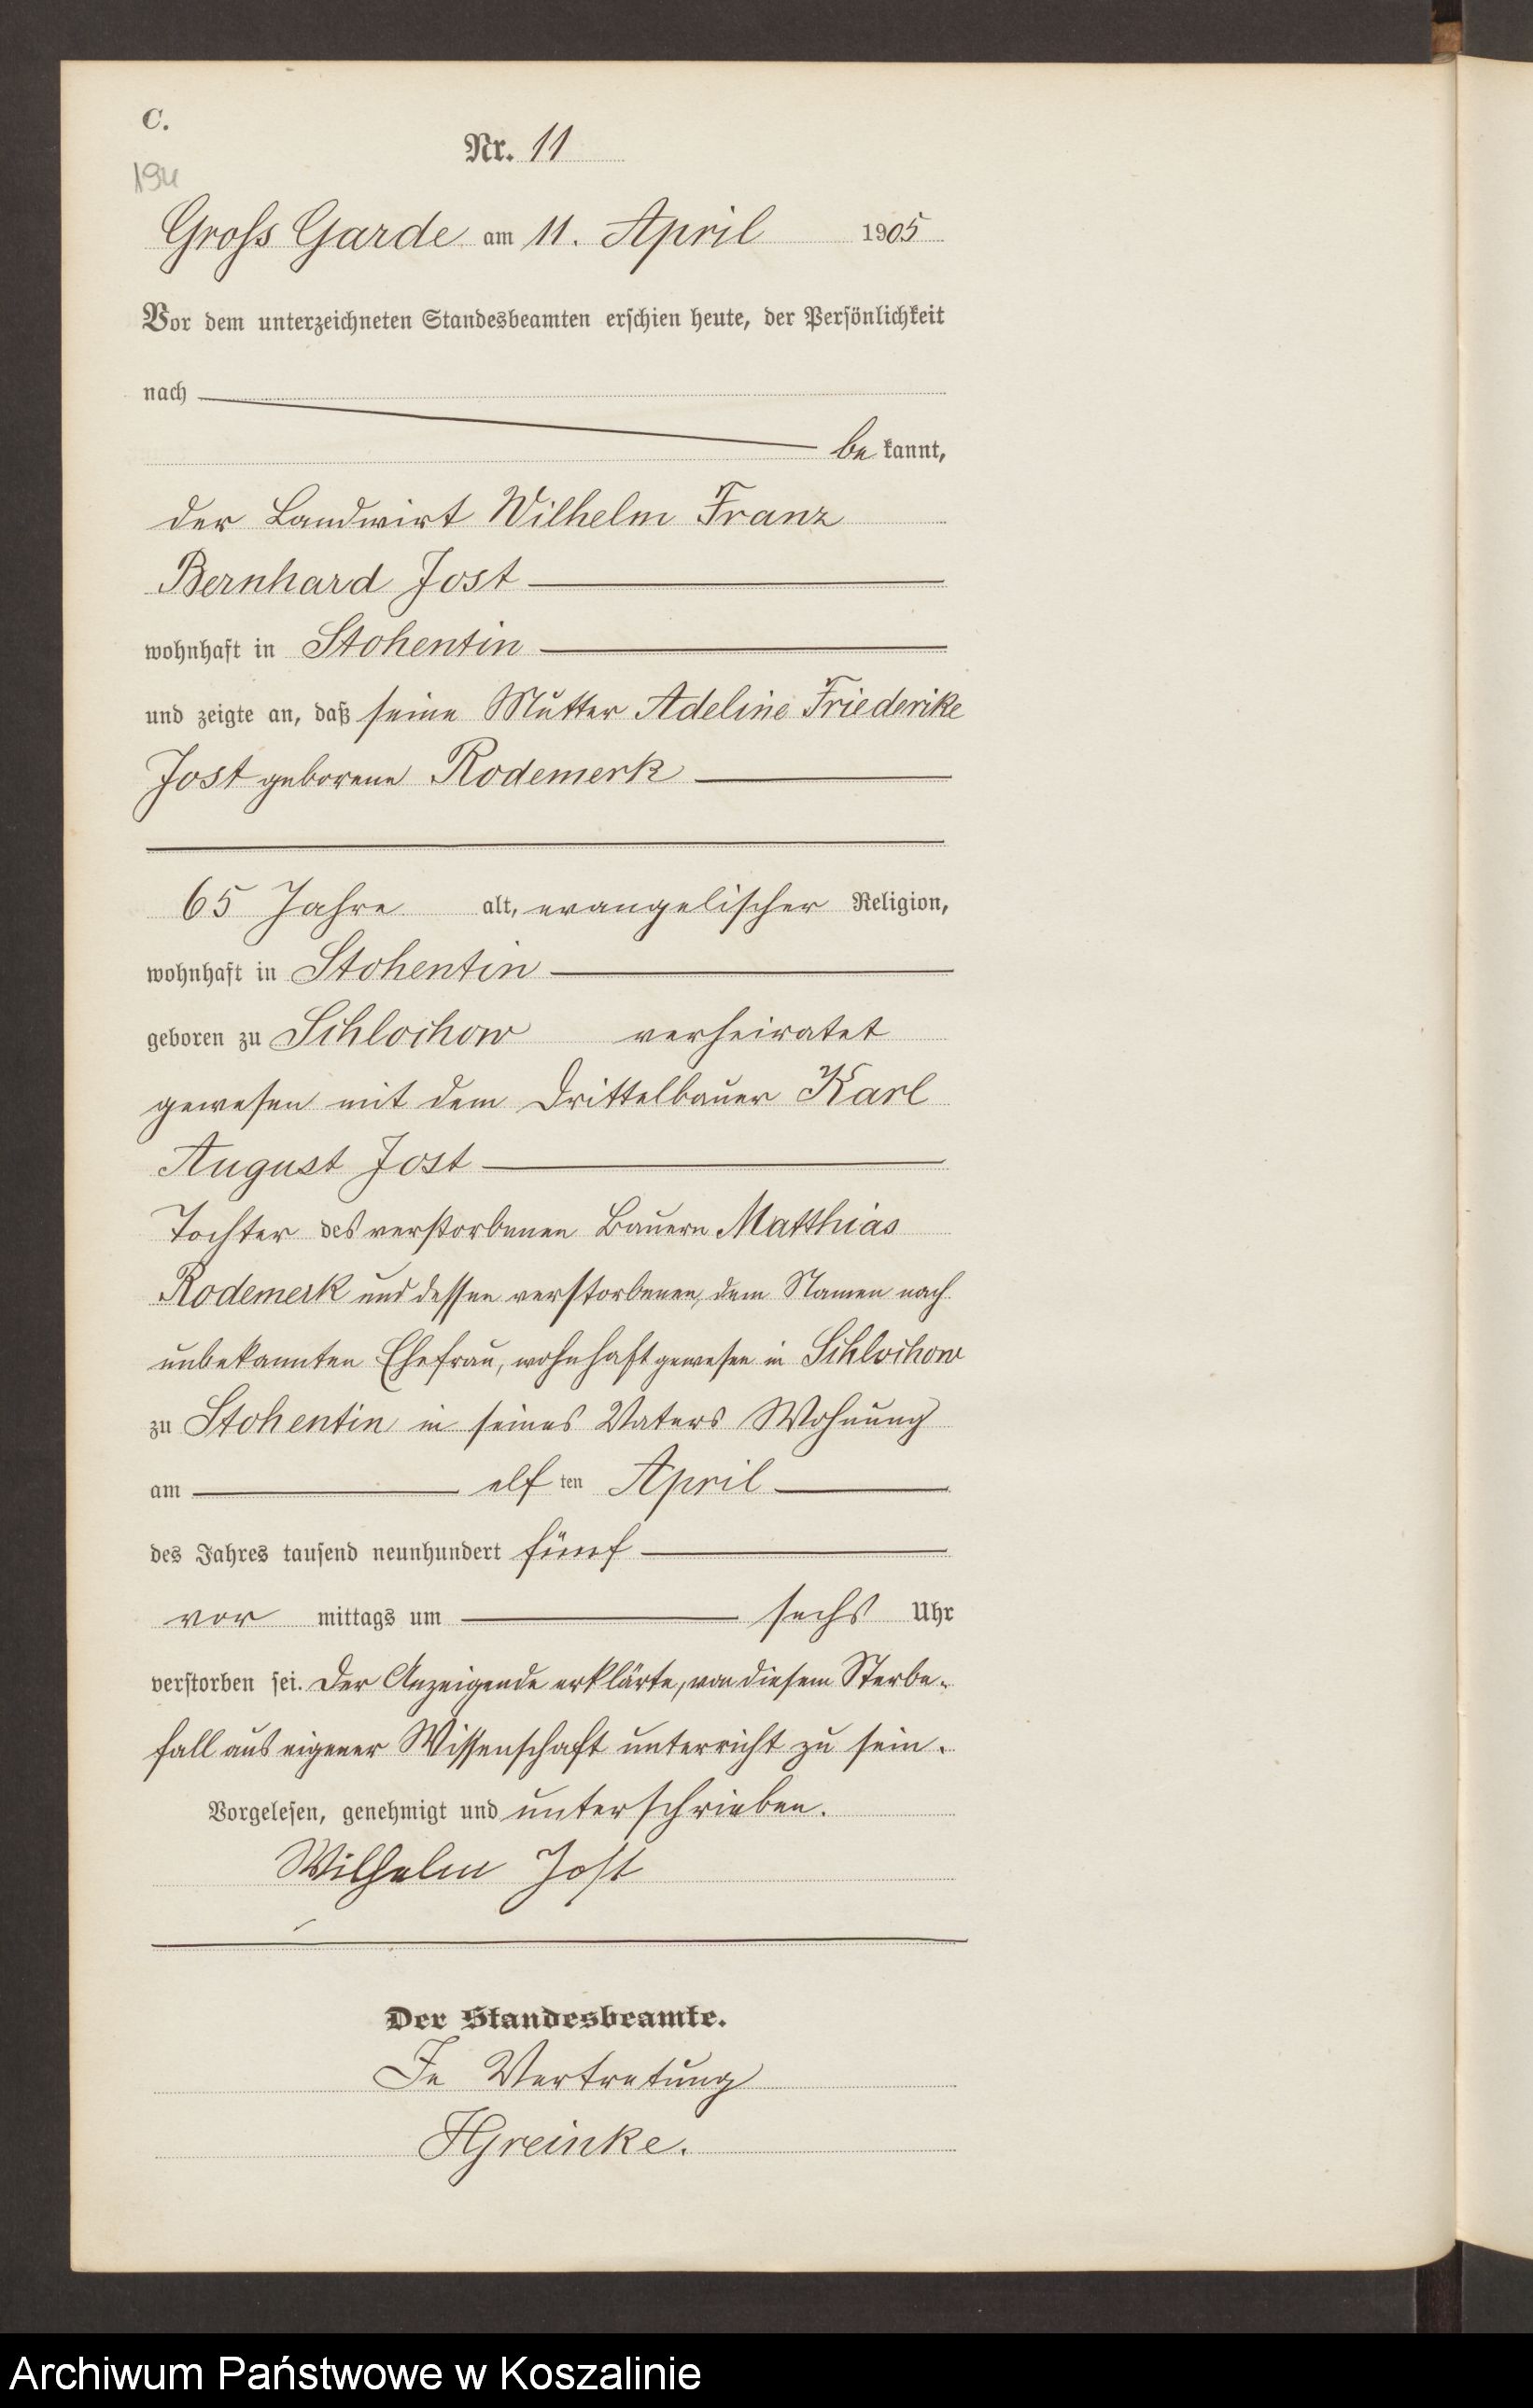 C.
Nr. 11
194
Gross Garde am 11. April 1905
Vor dem unterzeichneten Standesbeamten erschien heute, der Persönlichkeit
nach
be kannt,
der Landwirt Wilhelm Franz
Bernhard Jost
wohnhaft in Stohentin
und zeigte an, daß seine Mutter Adeline Friederike
Jost geborene Rodemerk
65 Jahre alt, evangelischer Religion,
wohnhaft in Stohentin
geboren zu Schlochow verheiratet
gewesen mit dem Drittelbauer Karl
August Jost
Tochter des verstorbenen Bauern Matthias
Rodemerk und dessen verstorbenen, dem Namen nach
unbekannten Ehefrau, wohnhaft gewesen in Schlochow
zu Stohentin in seines Vaters Wohnung
am elf ten April
des Jahres tausend neunhundert fünf
vor mittags um sechs Uhr
verstorben sei. Der Anzeigende erklärte, von diesem Sterbe-
fall aus eigener Wissenschaft unterricht zu sein.
Vorgelesen, genehmigt und unterschrieben.
Wilhelm Jost
Der Standesbeamte.
In Vertretung
HGreinke.
Archiwum Państwowe w Koszalinie